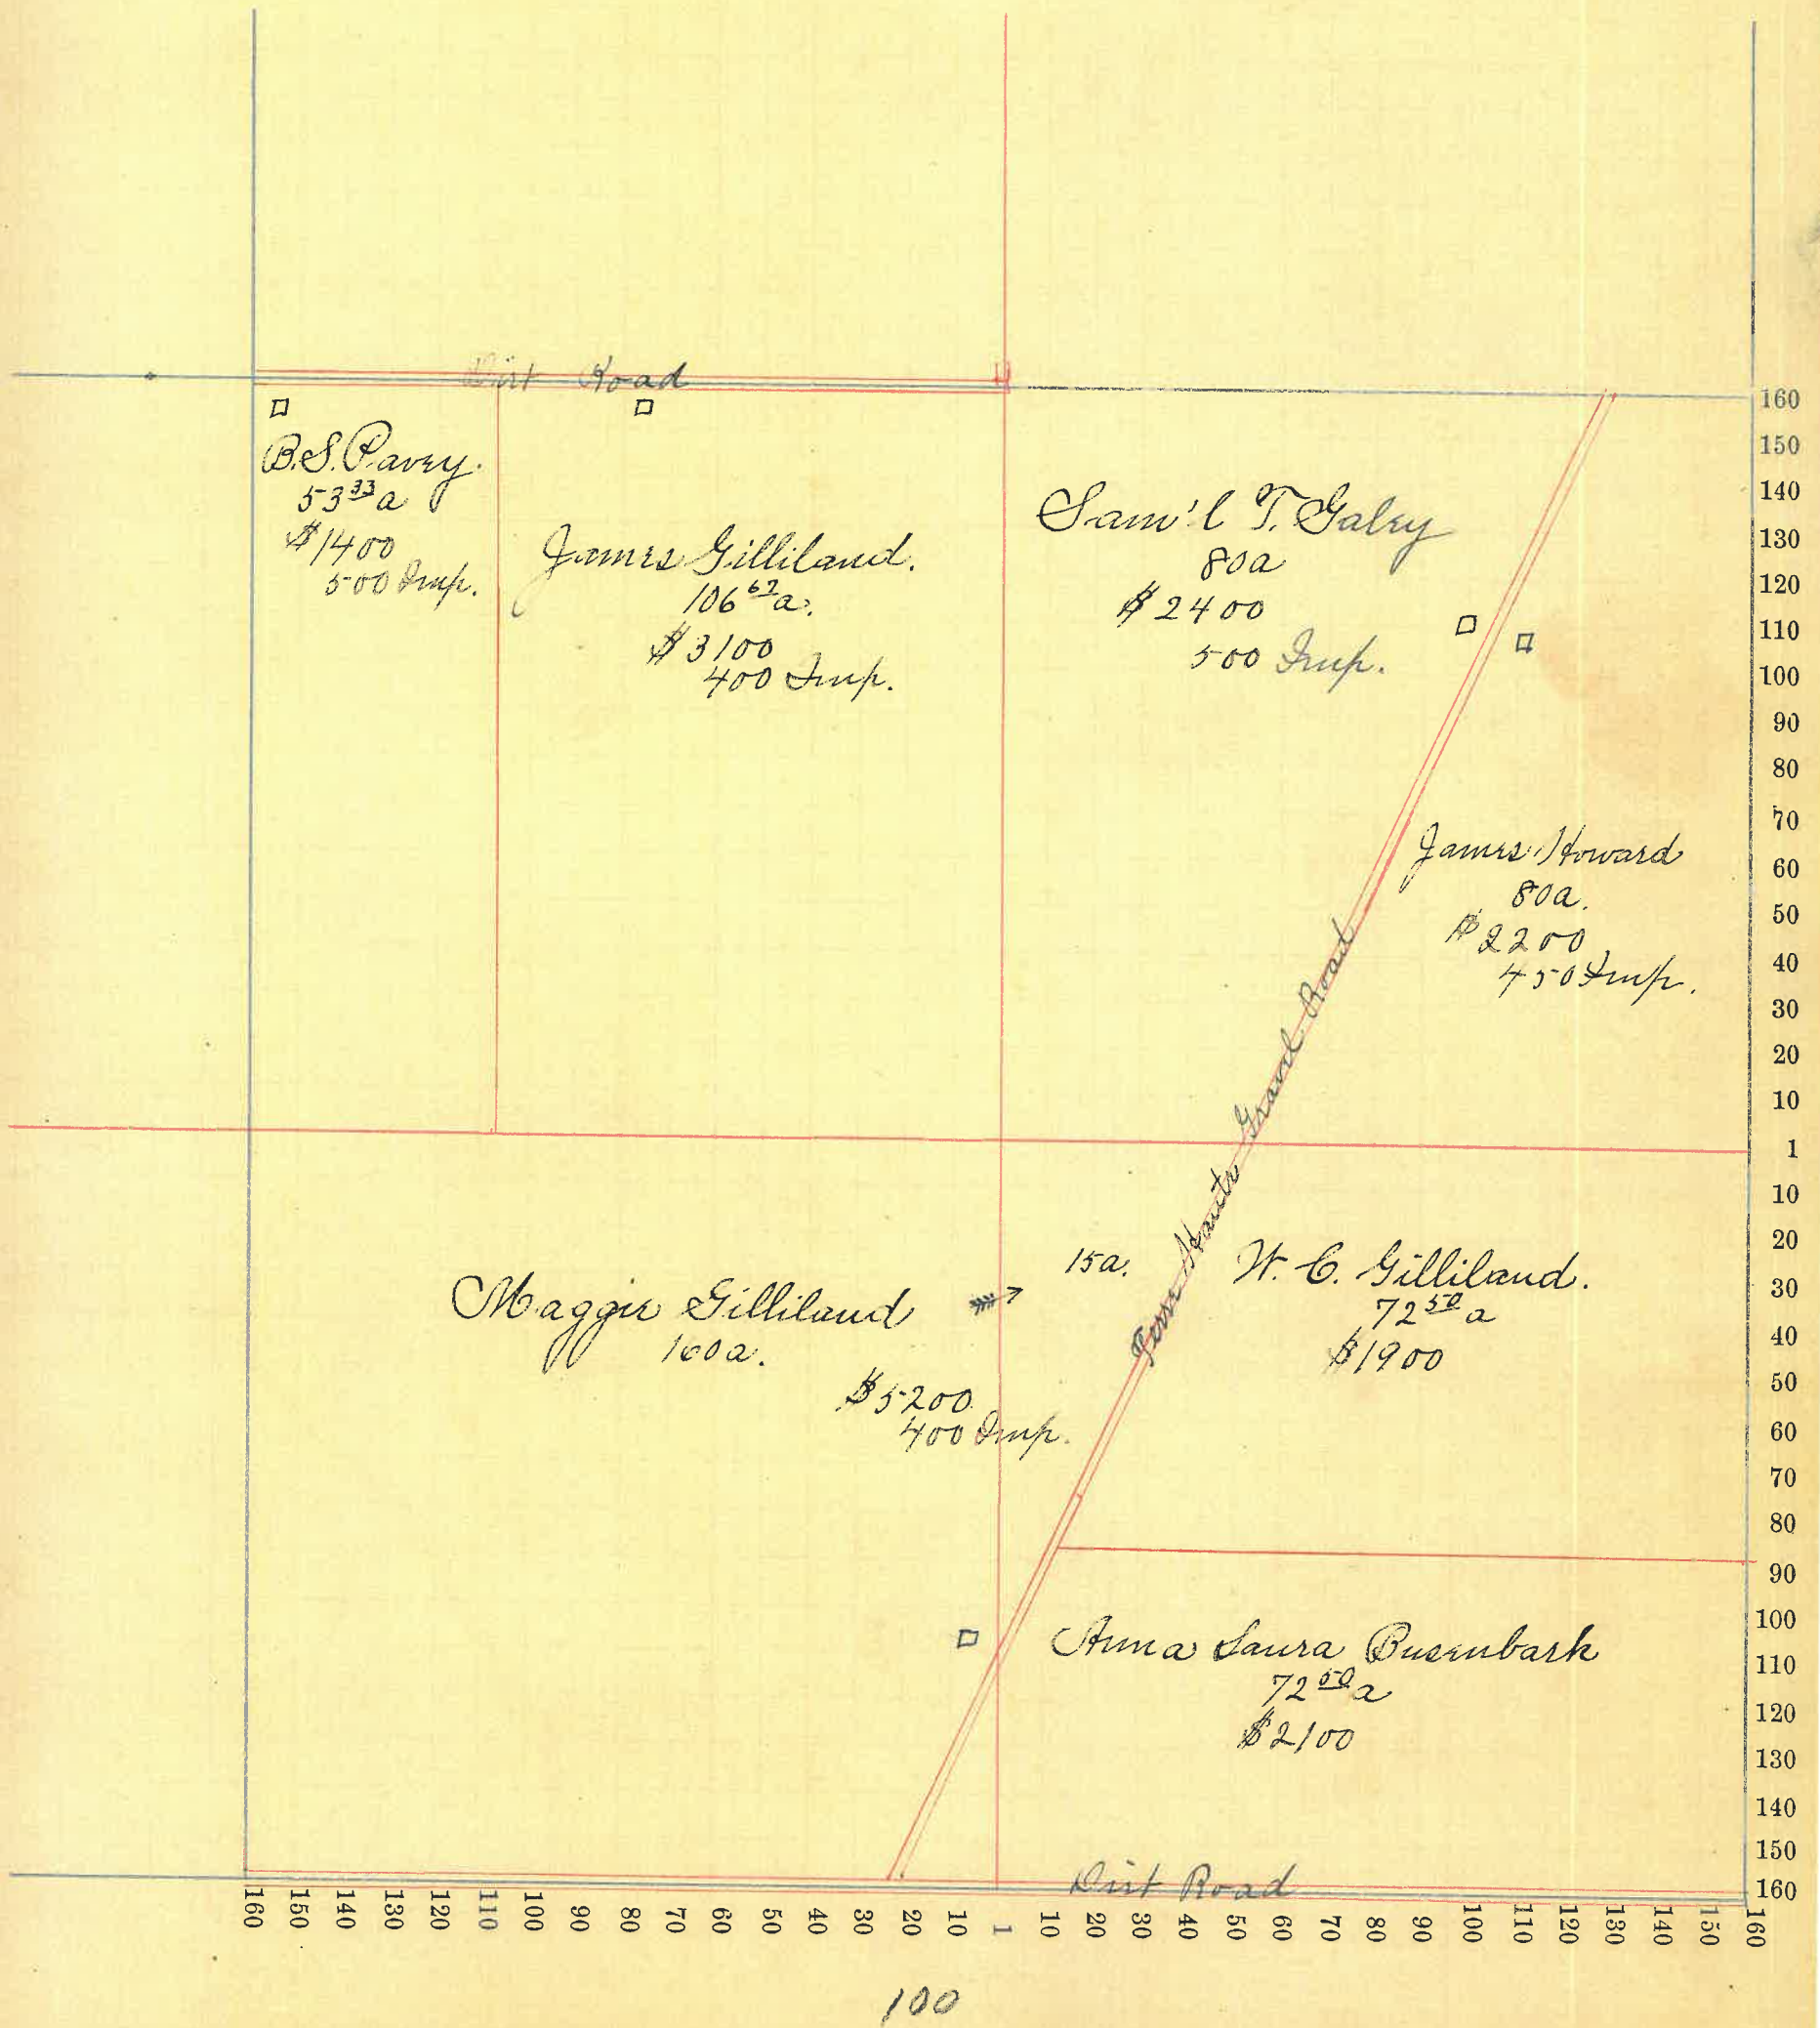 Dirt Road
B.S. Pavey.
53 33 a
$1400
500 Imp.
James Gilliland.
106 67 a.
$3100
400 Imp.
Sam'l T. Galey
80a
$2400
500 Imp.
James Howard
80a.
$2200
450 Imp.
Terre Haute Gravel Road
Maggie Gilliland
160a.
$5200
400 Imp.
15a.
W. C. Gilliland.
72 50 a
$1900
Anna Laura Busenbark
72 50 a
$2100
Dirt Road
160
150
140
130
120
110
100
90
80
70
60
50
40
30
20
10
1
10
20
30
40
50
60
70
80
90
100
110
120
130
140
150
160
160 150 140 130 120 110 100 90 80 70 60 50 40 30 20 10 1 10 20 30 40 50 60 70 80 90 100 110 120 130 140 150 160
100